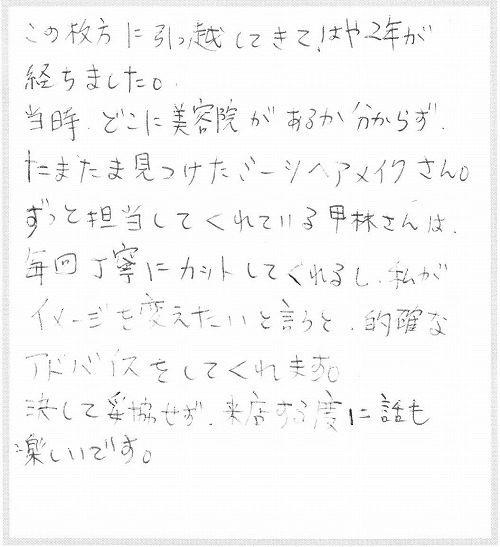 この枚方に引っ越してきて、はや2年が
経ちました。
当時、どこに美容院があるか分からず、
たまたま見つけたバーシヘアメイクさん。
ずっと担当してくれている甲林さんは、
毎回丁寧にカットしてくれるし、私が
イメージを変えたいと言うと、的確な
アドバイスをしてくれます。
決して妥協せず、来店する度に話も
楽しいです。